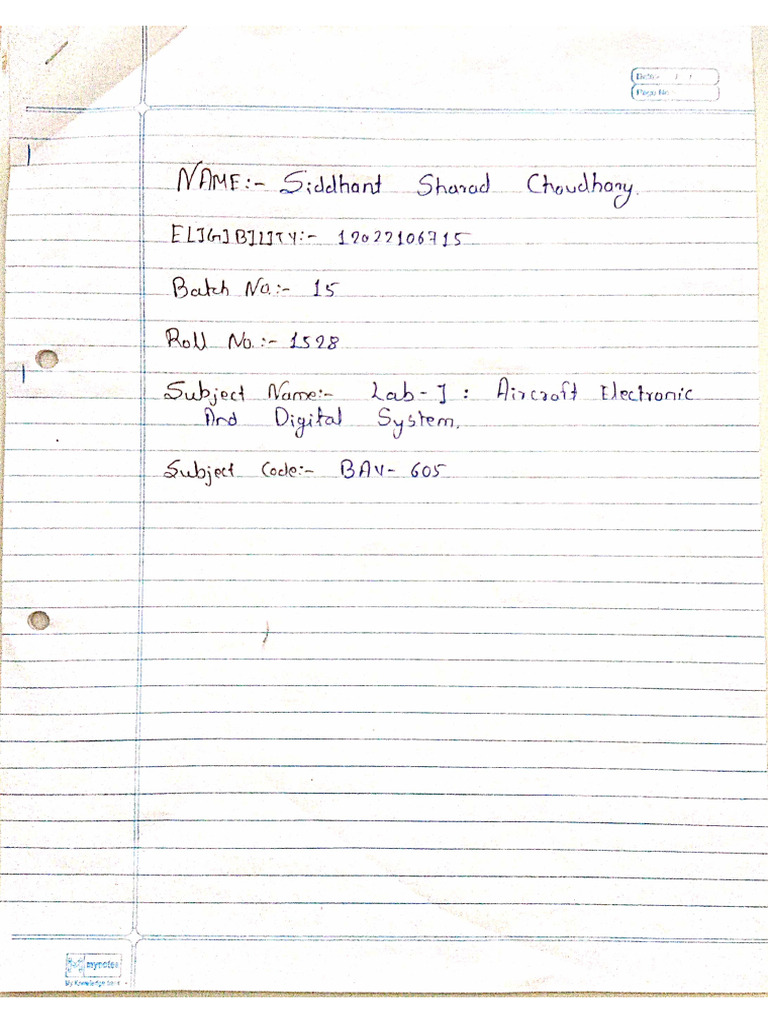 Date :- / /
Page No :-
NAME:- Siddhant Sharad Choudhary.
ELIGIBILITY:- 12022106715
Batch No.:- 15
Roll No.:- 1528
Subject Name:- Lab-I : Aircraft Electronic
And Digital System.
Subject Code:- BAV- 605
mynotes
My Knowledge bank